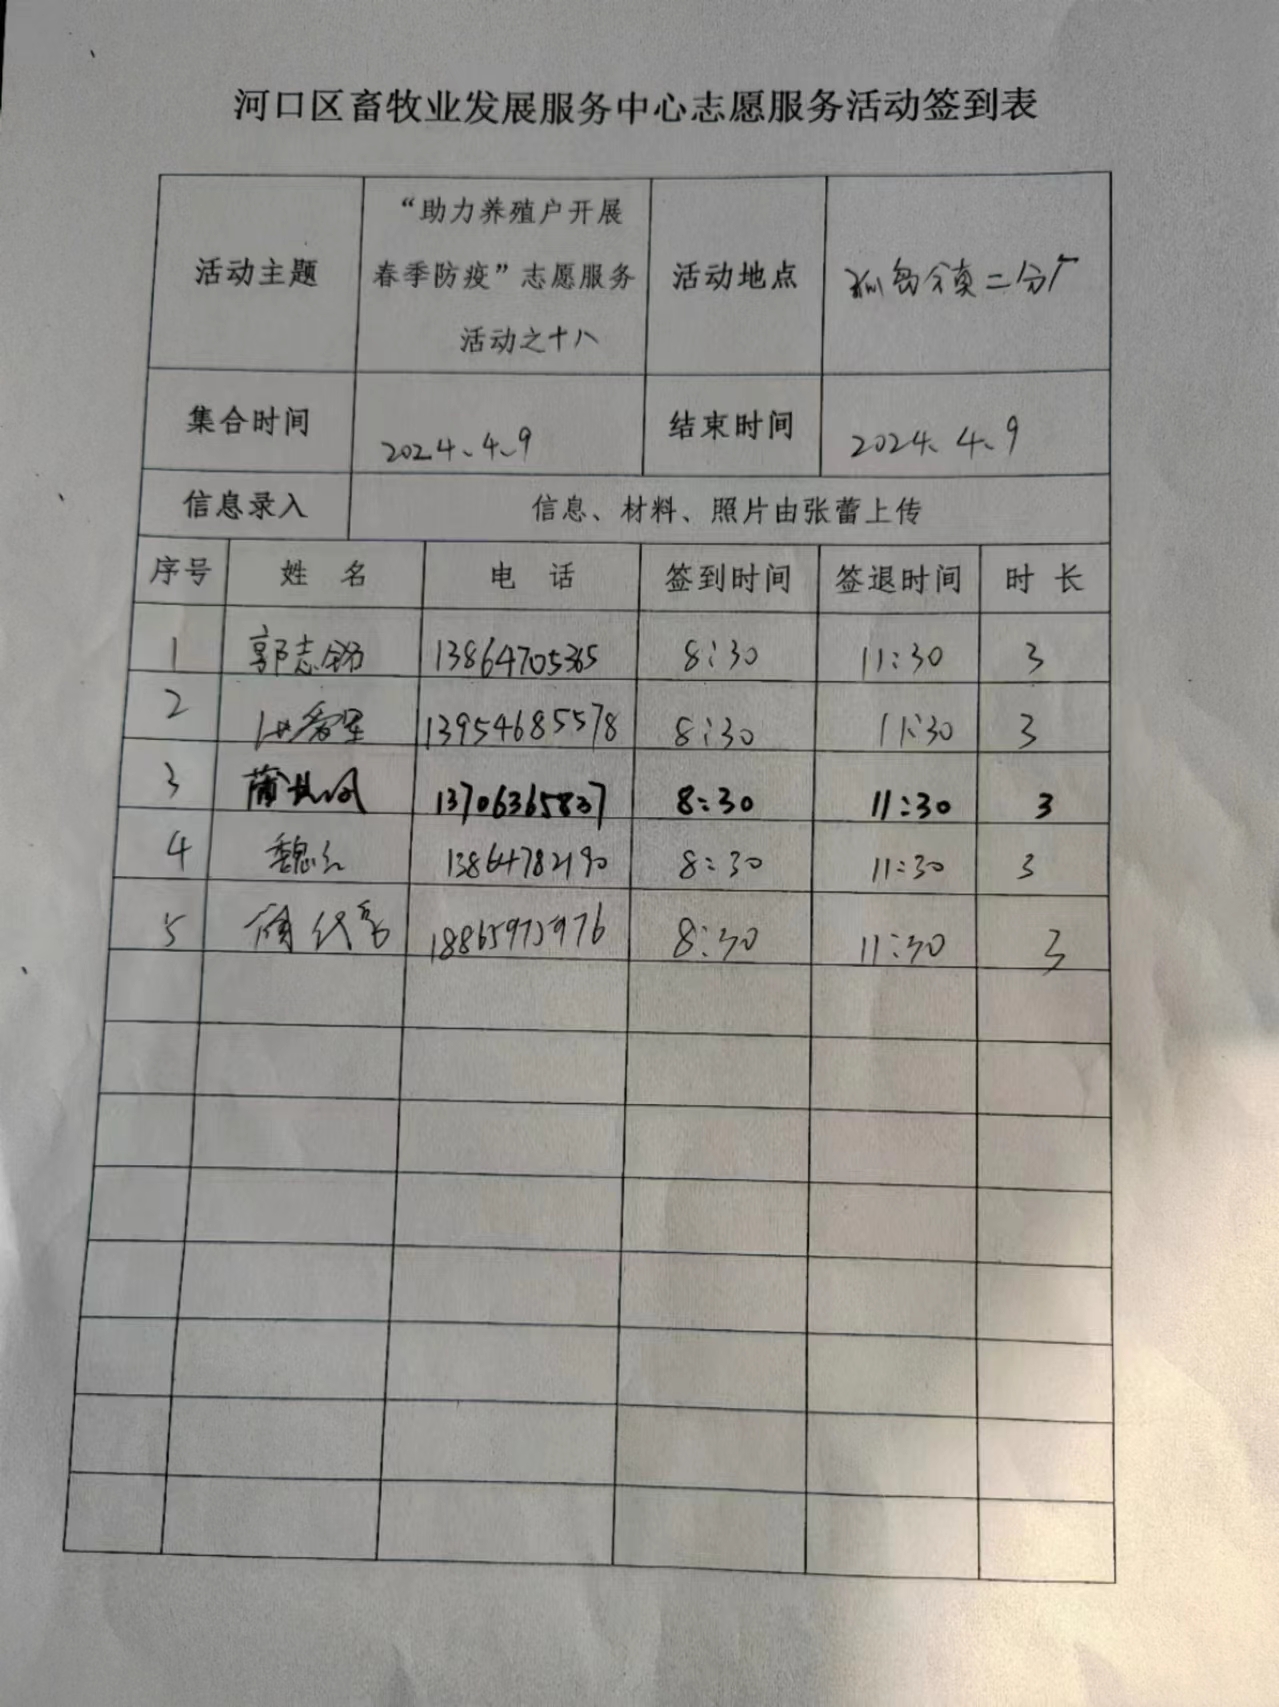 河口区畜牧业发展服务中心志愿服务活动签到表
活动主题 “助力养殖户开展春季防疫”志愿服务活动之十八 活动地点 孤岛镇二分厂
集合时间 2024、4、9 结束时间 2024、4、9
信息录入 信息、材料、照片由张蕾上传
序号 姓 名 电 话 签到时间 签退时间 时 长
1 郭志 13864705365 8:30 11:30 3
2 13954685578 8:30 11:30 3
3 蒲 13706365837 8:30 11:30 3
4 魏 13864782190 8:30 11:30 3
5 8:30 11:30 3